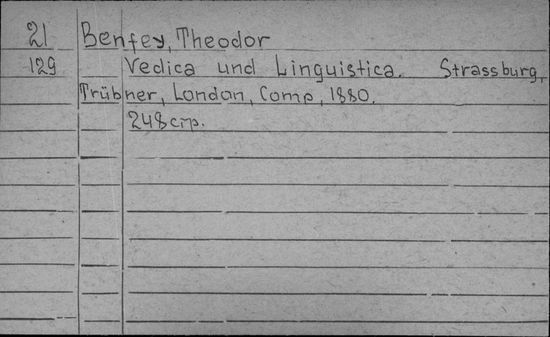 21 Benfey, Theodor
129 Vedica und Linguistica. Strassburg,
Trübner, London, Comp, 1880.
248 стр.